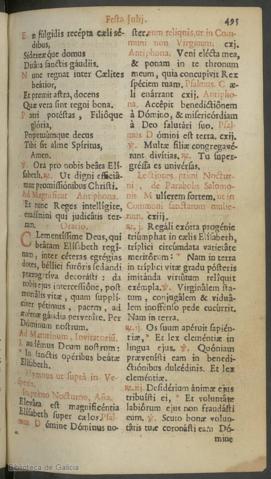 Festa Julij. 495
E n fulgidis recépta cæli sé-
dibus,
Sidereæque domus
Ditáta sanctis gáudiis.
N unc regnat inter Cælites
beátior,
Et premit astra, docens
Quæ vera sint regni bona.
P atri potéstas, Filióque
glória,
Perpetuúmque decus
Tibi sit alme Spíritus,
Amen.
℣. Ora pro nobis beáta Elí-
sabeth. ℟. Ut digni efficiá-
mur promissiónibus Christi.
Ad Magnificat Antiphona.
Et nunc Reges intellígite,
erudímini qui judicátis ter-
ram.
Oratio.
C Lementíssime Deus, qui
beátam Elísabeth regí-
nam, inter céteras egrégias
dotes, béllici furóris sedándi
prærogatíva decorásti: da
nobis ejus intercessióne, post
mortális vitæ, quam supplíci-
ter pétimus, pacem, ad
ætérna gáudia perveníre. Per
Dóminum nostrum.
Ad Matutinum, Invitatoriũ.
Laudémus Deum nostrum:
* In sanctis opéribus beátæ
Elísabeth.
Hymnus ut suprà in Ve-
speris.
In primo Nocturno, Aña.
Eleváta est magnificéntia
Elísabeth super cælos. Psal-
mus. D ómine Dóminus no-
ster, cum reliquis, ut in Com-
muni non Virginum. cxj.
Antiphona. Veni elécta mea,
& ponam in te thronum
meum, quia concupívit Rex
spéciem tuam. Psalmus. C æ-
li enárrant cxij. Antipho-
na. Accépit benedictiónem
à Dómino, & misericórdiam
à Deo salutári suo. Psal-
mus. D ómini est terra. cxij.
℣. Multæ fíliæ congregavé-
runt divítias. ℟. Tu super-
gréssa es univérsas.
Lectiones primi Noctur-
ni, de Parabolis Salomo-
nis M ulíerem fortem, ut in
Communi sanctarum mulie-
rum. cxiij.
℟. j. Regáli exórta progénie
triúmphat in cælis Elísabeth,
tríplici circúmdata varietáte
meritórum: * Nam in terra
in tríplici vitæ gradu pósteris
imitánda virtútum relíquit
exémpla. ℣. Virginálem sta-
tum, conjugálem & viduá-
lem inoffénso pede cucúrrit.
Nam in terra.
℟. ij. Os suum apéruit sapién-
tiæ, * Et lex cleméntiæ in
lingua ejus. ℣. Quóniam
prævenísti eam in benedi-
ctiónibus dulcédinis. Et lex
cleméntiæ.
℟. iij. Desidérium ánimæ ejus
tribuísti ei, * Et voluntáte
labiórum ejus non fraudásti
eum. ℣. Scuto bonæ volun-
tátis tuæ coronásti eam Dó-
mine
Biblioteca de Galicia